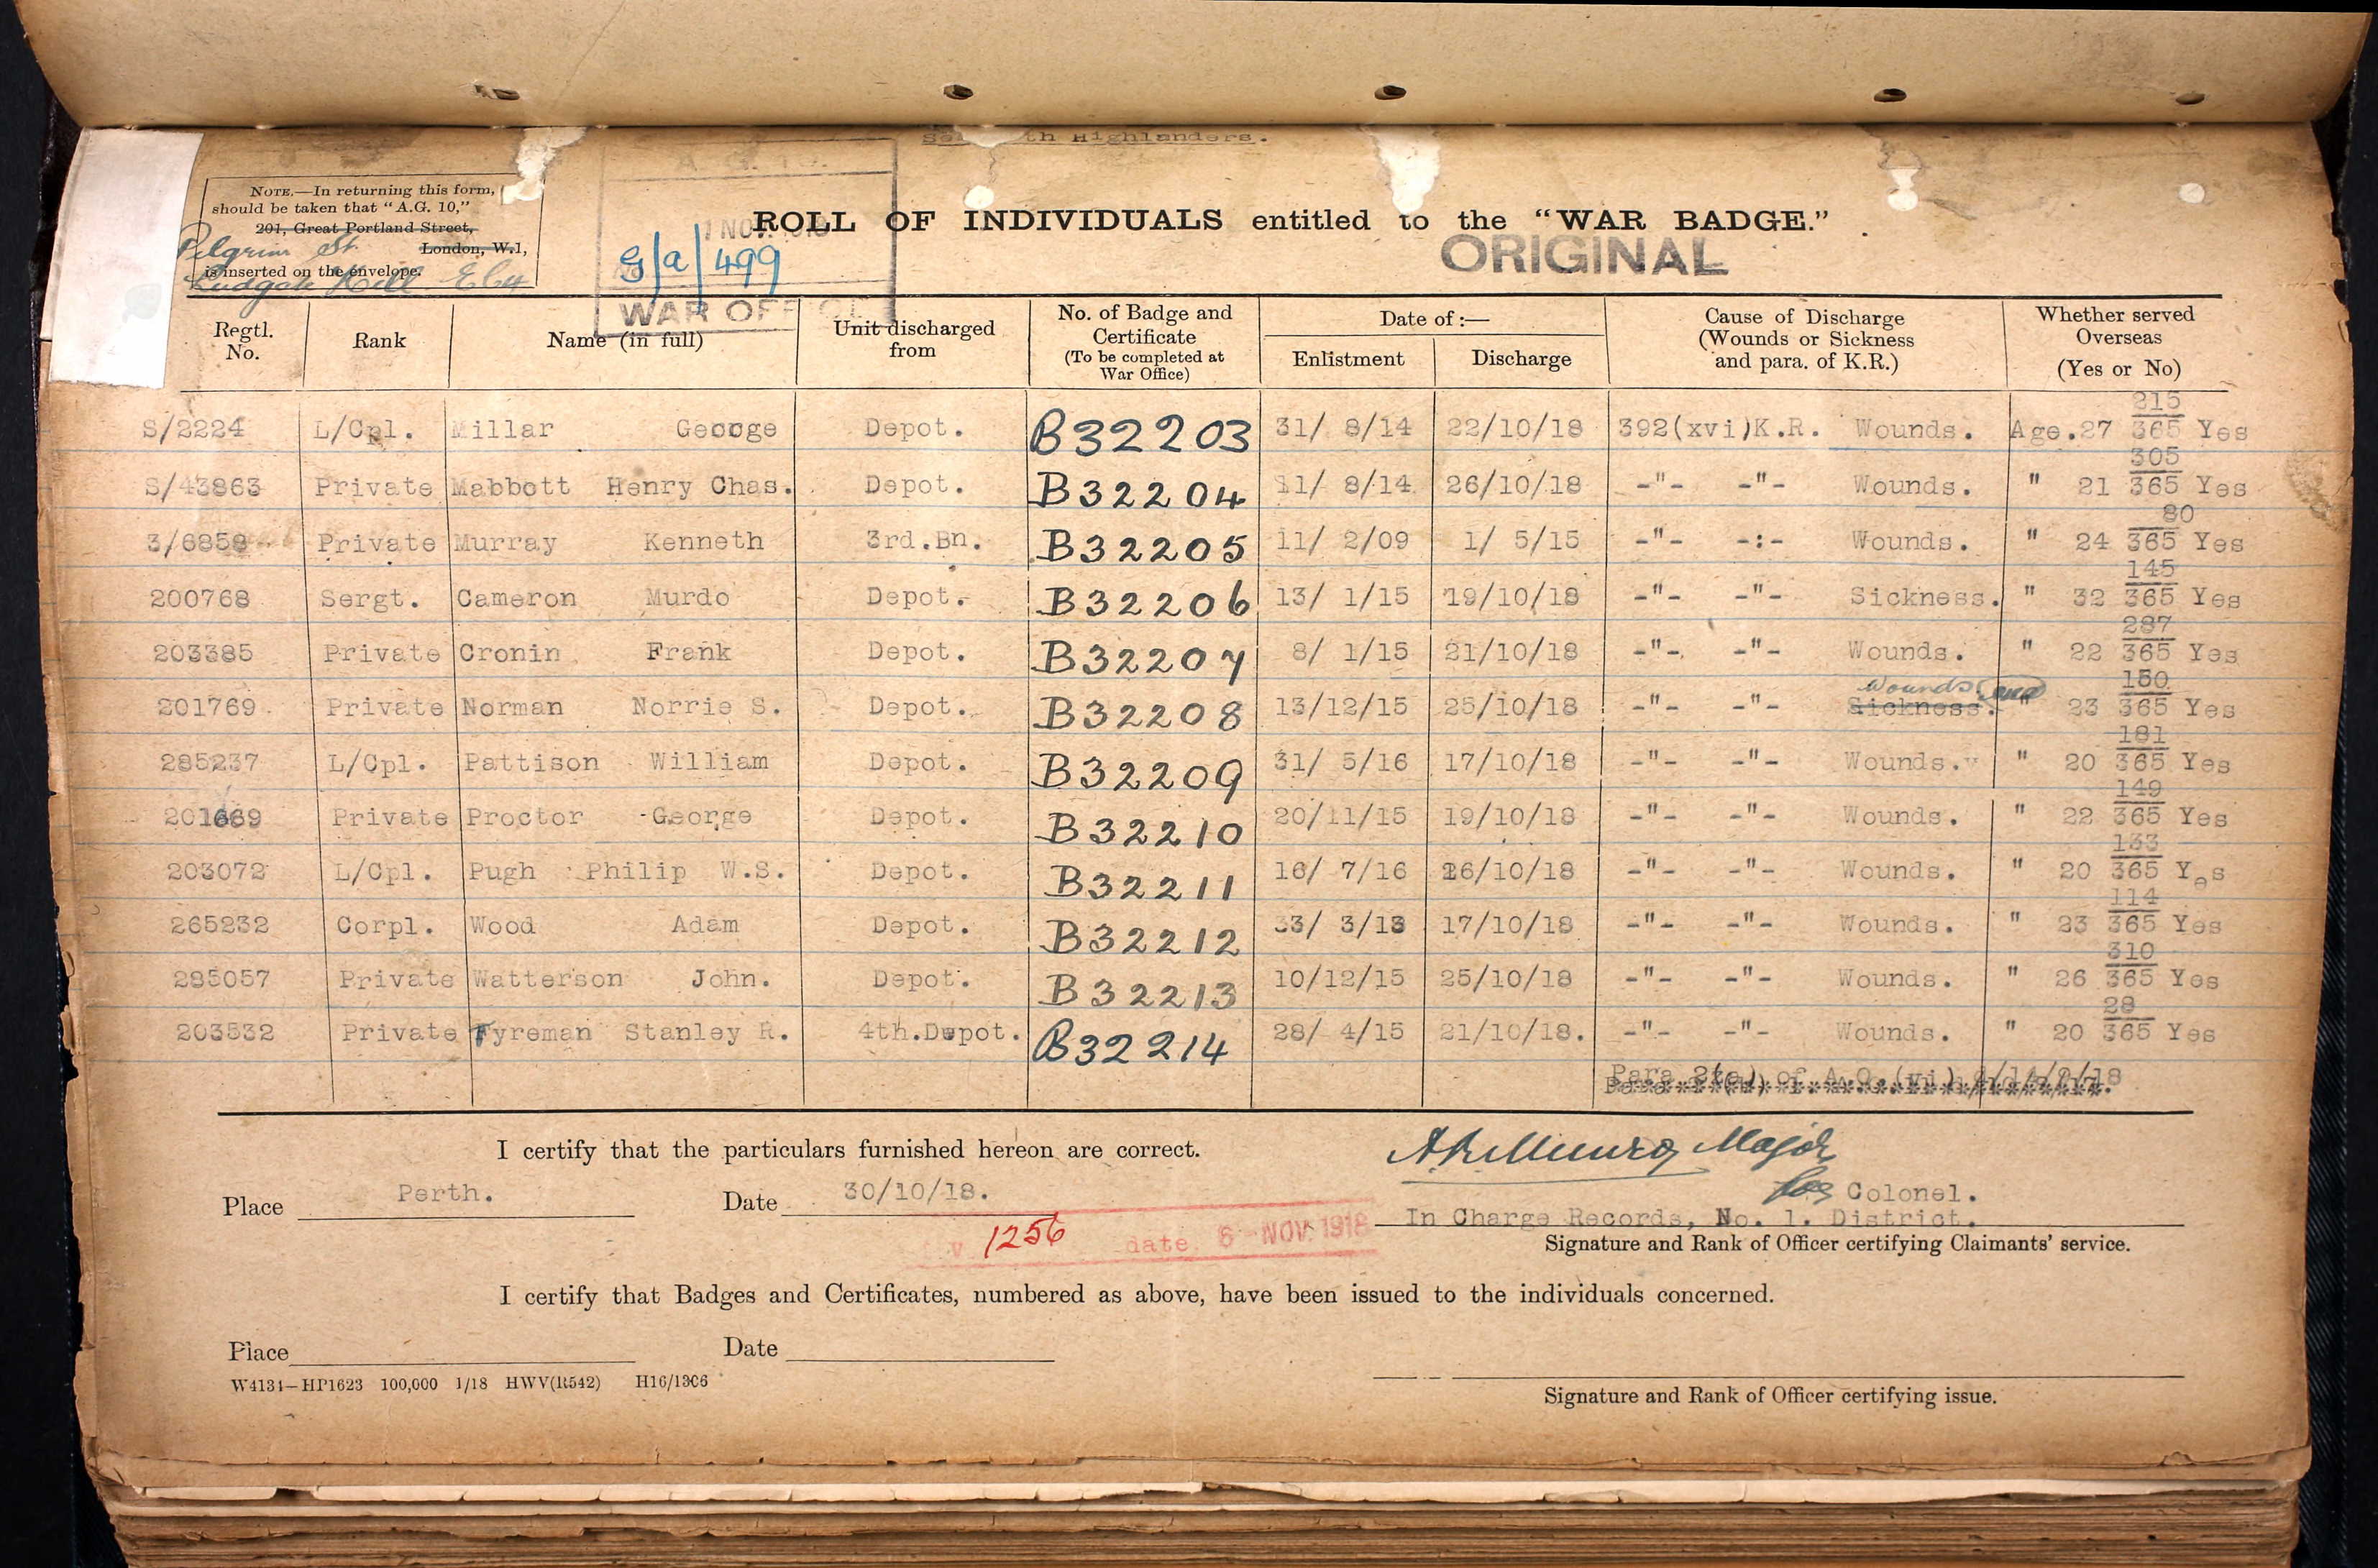 th Highlanders.
A. G. 10.
NOTE.—In returning this form,
should be taken that "A.G. 10,"
201, Great Portland Street,
Pelgrim St. London, W.1,
is inserted on the envelope.
Ludgate Hill EC4
NOV. 1918
G/a/499
WAR OFFICE
ROLL OF INDIVIDUALS entitled to the "WAR BADGE."
ORIGINAL
Regtl. No. Rank Name (in full) Unit discharged from No. of Badge and Certificate (To be completed at War Office) Date of :— Enlistment Discharge Cause of Discharge (Wounds or Sickness and para. of K.R.) Whether served Overseas (Yes or No)
S/2224 L/Cpl. Millar George Depot. B32203 31/ 8/14 22/10/18 392(xvi)K.R. Wounds. Age.27 215/365 Yes
S/43863 Private Mabbott Henry Chas. Depot. B32204 11/ 8/14 26/10/18 -"- -"- Wounds. " 21 305/365 Yes
3/6858 Private Murray Kenneth 3rd.Bn. B32205 11/ 2/09 1/ 5/15 -"- -:- Wounds. " 24 80/365 Yes
200768 Sergt. Cameron Murdo Depot. B32206 13/ 1/15 19/10/18 -"- -"- Sickness. " 32 145/365 Yes
203385 Private Cronin Frank Depot. B32207 8/ 1/15 21/10/18 -"- -"- Wounds. " 22 287/365 Yes
201769 Private Norman Norrie S. Depot. B32208 13/12/15 25/10/18 -"- -"- Wounds Sickness. " 23 150/365 Yes
285237 L/Cpl. Pattison William Depot. B32209 31/ 5/16 17/10/18 -"- -"- Wounds. " 20 181/365 Yes
201669 Private Proctor George Depot. B32210 20/11/15 19/10/18 -"- -"- Wounds. " 22 149/365 Yes
203072 L/Cpl. Pugh Philip W.S. Depot. B32211 16/ 7/16 26/10/18 -"- -"- Wounds. " 20 133/365 Yes
265232 Corpl. Wood Adam Depot. B32212 3/13 17/10/18 -"- -"- Wounds. " 23 114/365 Yes
285057 Private Watterson John. Depot. B32213 10/12/15 25/10/18 -"- -"- Wounds. " 26 310/365 Yes
203532 Private Fyreman Stanley R. 4th.Depot. B32214 28/ 4/15 21/10/18. -"- -"- Wounds. " 20 28/365 Yes
Para 2(a) of A.O.(vi)
I certify that the particulars furnished hereon are correct.
Munro Major
for Colonel.
Place Perth. Date 30/10/18.
In Charge Records, No. 1. District.
1256 date 6 - NOV. 1918
Signature and Rank of Officer certifying Claimants' service.
I certify that Badges and Certificates, numbered as above, have been issued to the individuals concerned.
Place Date
W4131—HP1623 100,000 1/18 HWV(R542) H16/1306
Signature and Rank of Officer certifying issue.